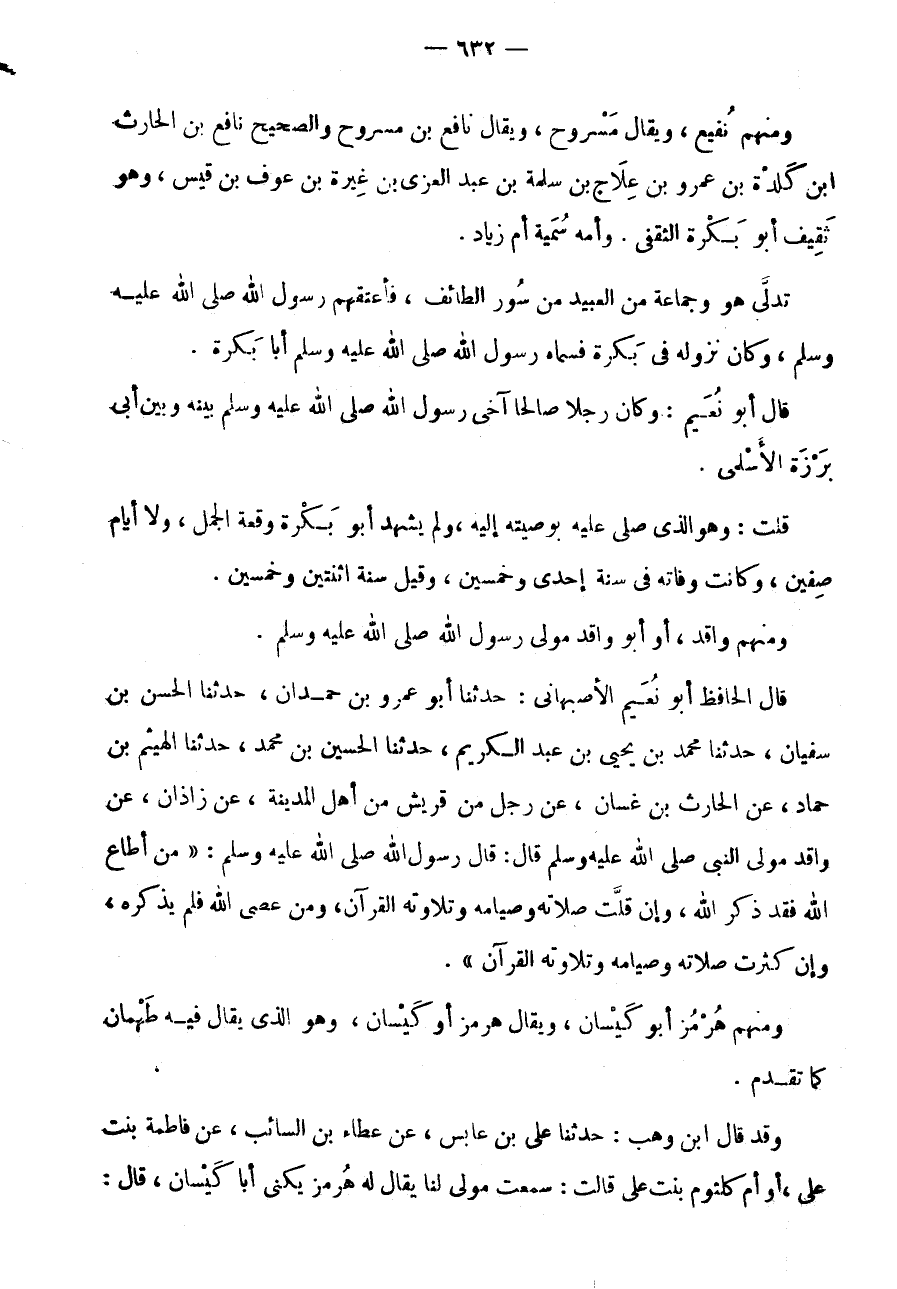 — ٦٣٢ —
ومنهم نُفيع ، ويقال مَسْروح ، ويقال نافع بن مسروح والصحيح نافع بن الحارث
ابن كَلَدْة بن عمرو بن عِلَاج بن سلمة بن عبد العزى بن غِيرة بن عوف بن قيس ، وهو
ثَقِيف أبو بَكْرة الثقفى . وأمه سُمَية أم زياد .
تدلَّى هو وجماعة من العبيد من سُور الطائف ، فأعتقهم رسول الله صلى الله عليه
وسلم ، وكان نزوله فى بَكرة فسماه رسول الله صلى الله عليه وسلم أبا بَكرة .
قال أبو نُعَيم : وكان رجلا صالحا آخى رسول الله صلى الله عليه وسلم بينه وبين أبى
بَرْزَة الأَسْلمى .
قلت : وهو الذى صلى عليه بوصيته إليه ، ولم يشهد أبو بَكْرة وقعة الجمل ، ولا أيام
صِفين ، وكانت وفاته فى سنة إحدى وخمسين ، وقيل سنة اثنتين وخمسين .
ومنهم واقد ، أو أبو واقد مولى رسول الله صلى الله عليه وسلم .
قال الحافظ أبو نُعَيم الأصبهانى : حدثنا أبو عمرو بن حمدان ، حدثنا الحسن بن
سفيان ، حدثنا محمد بن يحيى بن عبد الكريم ، حدثنا الحسين بن محمد ، حدثنا الهيثم بن
حماد ، عن الحارث بن غسان ، عن رجل من قريش من أهل المدينة ، عن زاذان ، عن
واقد مولى النبى صلى الله عليه وسلم قال : قال رسول الله صلى الله عليه وسلم : « من أطاع
الله فقد ذكر الله ، وإن قلَّت صلاته وصيامه وتلاوته القرآن ، ومن عصى الله فلم يذكره ،
وإن كثرت صلاته وصيامه وتلاوته القرآن » .
ومنهم هُرْمُز أبو كَيْسان ، ويقال هرمز أو كَيْسان ، وهو الذى يقال فيه طَهْمان
كما تقدم .
وقد قال ابن وهب : حدثنا على بن عابس ، عن عطاء بن السائب ، عن فاطمة بنت
على ، أو أم كلثوم بنت على قالت : سمعت مولى لنا يقال له هُرمز يكنى أبا كَيْسان ، قال :